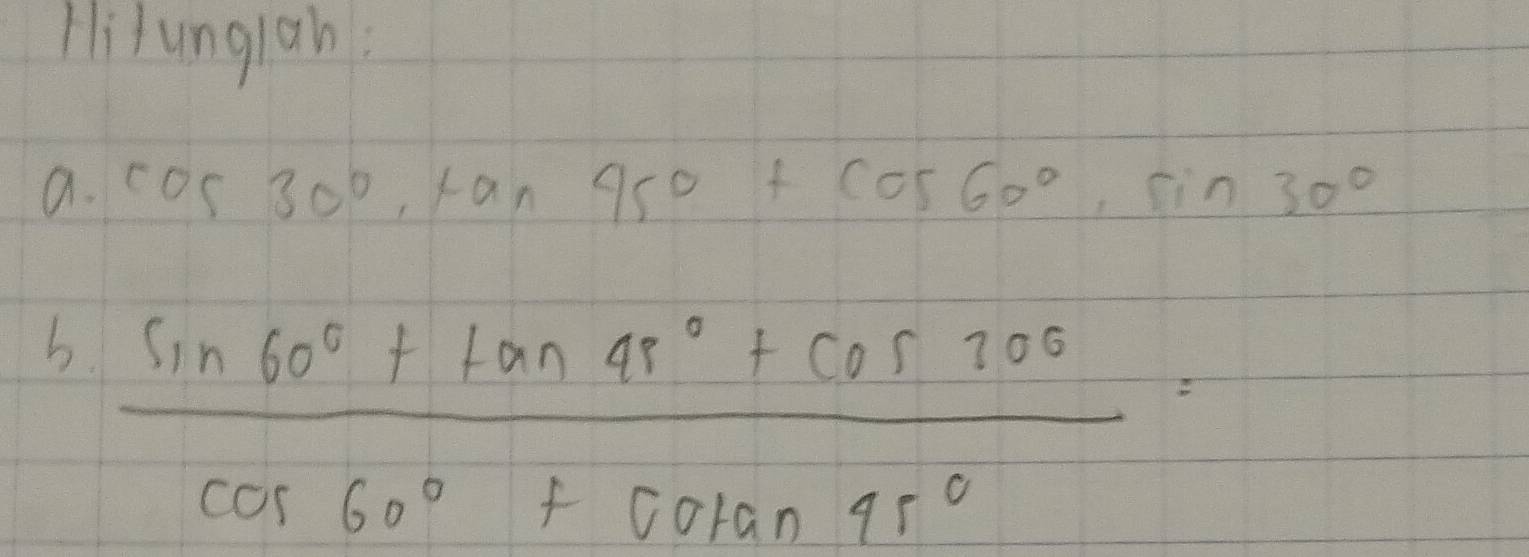 Hitunglah:
a. cos 30°. tan 45° + cos 60°. sin 30°
b. sin 60° + tan 45° + cos 30° =
cos 60° + cotan 45°